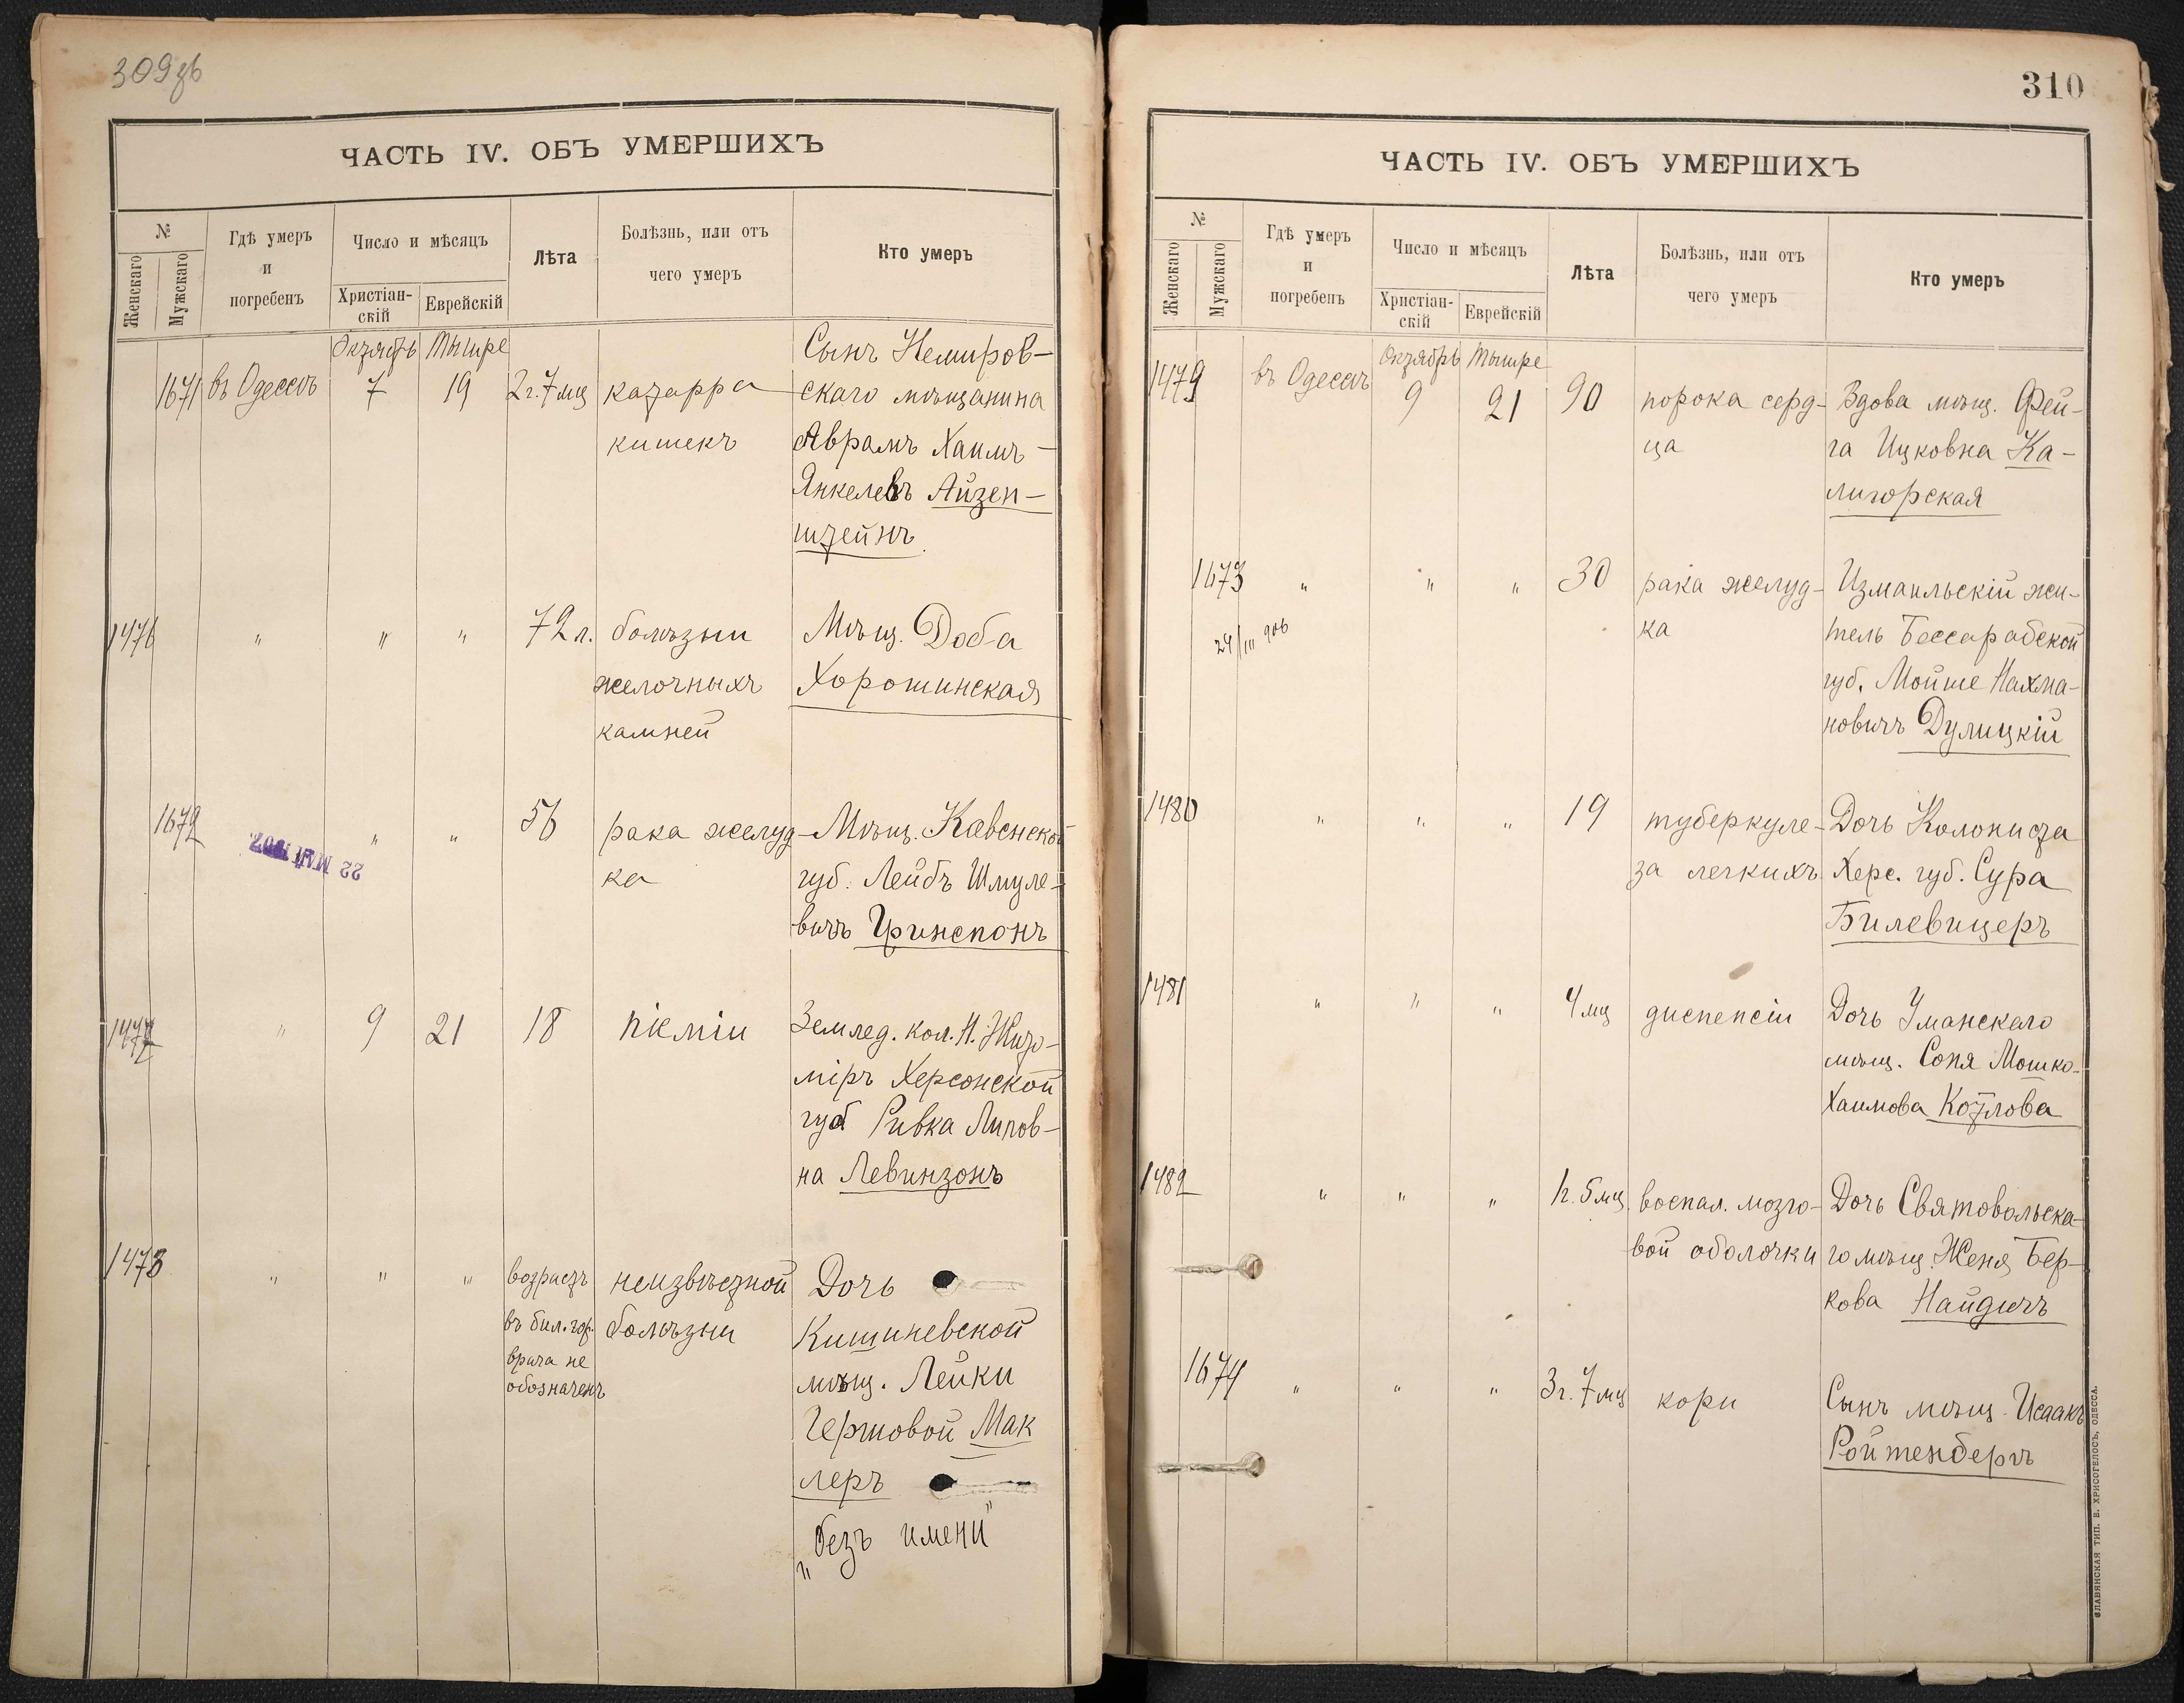 309 зв
ЧАСТЬ IV. ОБЪ УМЕРШИХЪ
№
Женскаго
Мужскаго
Гдѣ умеръ
и
погребенъ
Число и мѣсяцъ
Христіан-
скій
Еврейскій
Лѣта
Болѣзнь, или отъ
чего умеръ
Кто умеръ
Октябрь Тышре
1671 въ Одессѣ 7 19 2г. 7 мц катарра
кишекъ
Сынъ Немиров-
скаго мѣщанина
Аврамъ Хаимъ-
Янкелевъ Айзен-
штейнъ
1476 " " " 72 л. болѣзни
желочныхъ
камней
Мѣщ. Доба
Хорошинская
1672 " " 56 рака желуд-
ка
22 МАЯ 1907
Мѣщ. Ковенской
губ. Лейбъ Шмуле-
вичъ Гринспонъ
1477 " 9 21 18 піеміи
Землед. кол. Н. Жито-
міръ Херсонской
губ Ривка Липов-
на Левинзонъ
1478 " " " возрастъ
въ бил. гор.
врача не
обозначенъ
неизвѣстной
болѣзни
Дочь
Кишиневской
мѣщ. Лейки
Гершовой Мак
леръ
"безъ имени"
310
ЧАСТЬ IV. ОБЪ УМЕРШИХЪ
№
Женскаго
Мужскаго
Гдѣ умеръ
и
погребенъ
Число и мѣсяцъ
Христіан-
скій
Еврейскій
Лѣта
Болѣзнь, или отъ
чего умеръ
Кто умеръ
Октябрь Тышре
1479 въ Одессѣ 9 21 90 порока серд-
ца
Вдова мѣщ. Фей-
га Ицковна Ка-
лигорская
1673 " " " 30 рака желуд-
ка
24/III 906
Измаильскій жи-
тель Бессарабской
губ. Мойше Нахма-
новичъ Дулицкій
1480 " " " 19 туберкуле-
за легкихъ
Дочь Колониста
Херс. губ. Сура
Билевицеръ
1481 " " " 4 мц диспепсіи
Дочь Уманскаго
мѣщ. Соня Мошко-
Хаимова Козлова
1482 " " " 1г. 5 мц. воспал. мозго-
вой оболочки
Дочь Святовольска-
го мѣщ. Женя Бер-
кова Найдичъ
1674 " " " 3г. 7 мц кори
Сынъ мѣщ. Исаакъ
Ройтенбергъ
СЛАВЯНСКАЯ ТИП. В. ХРИСОГЕЛОСЪ, ОДЕССА.